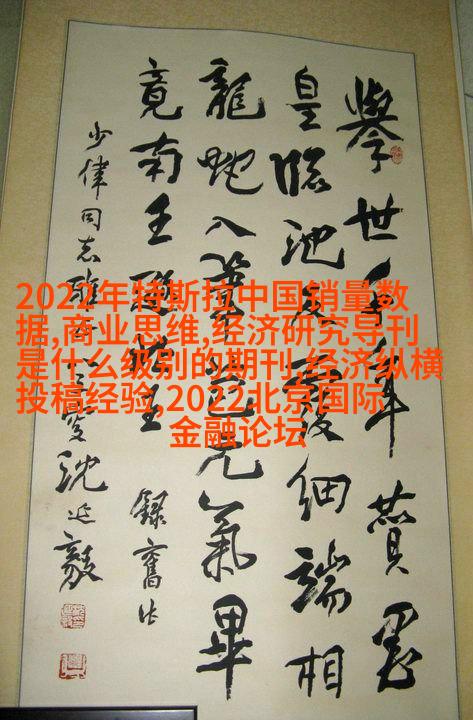 擧世千年贊墨
皇臨池反覆細端相
龍蛇入筆元氣畢
竟南王王
錄舊作
少偉同志雅沈延毅
2022年特斯拉中国销量数
据,商业思维,经济研究导刊
是什么级别的期刊,经济纵横
投稿经验,2022北京国际
金融论坛